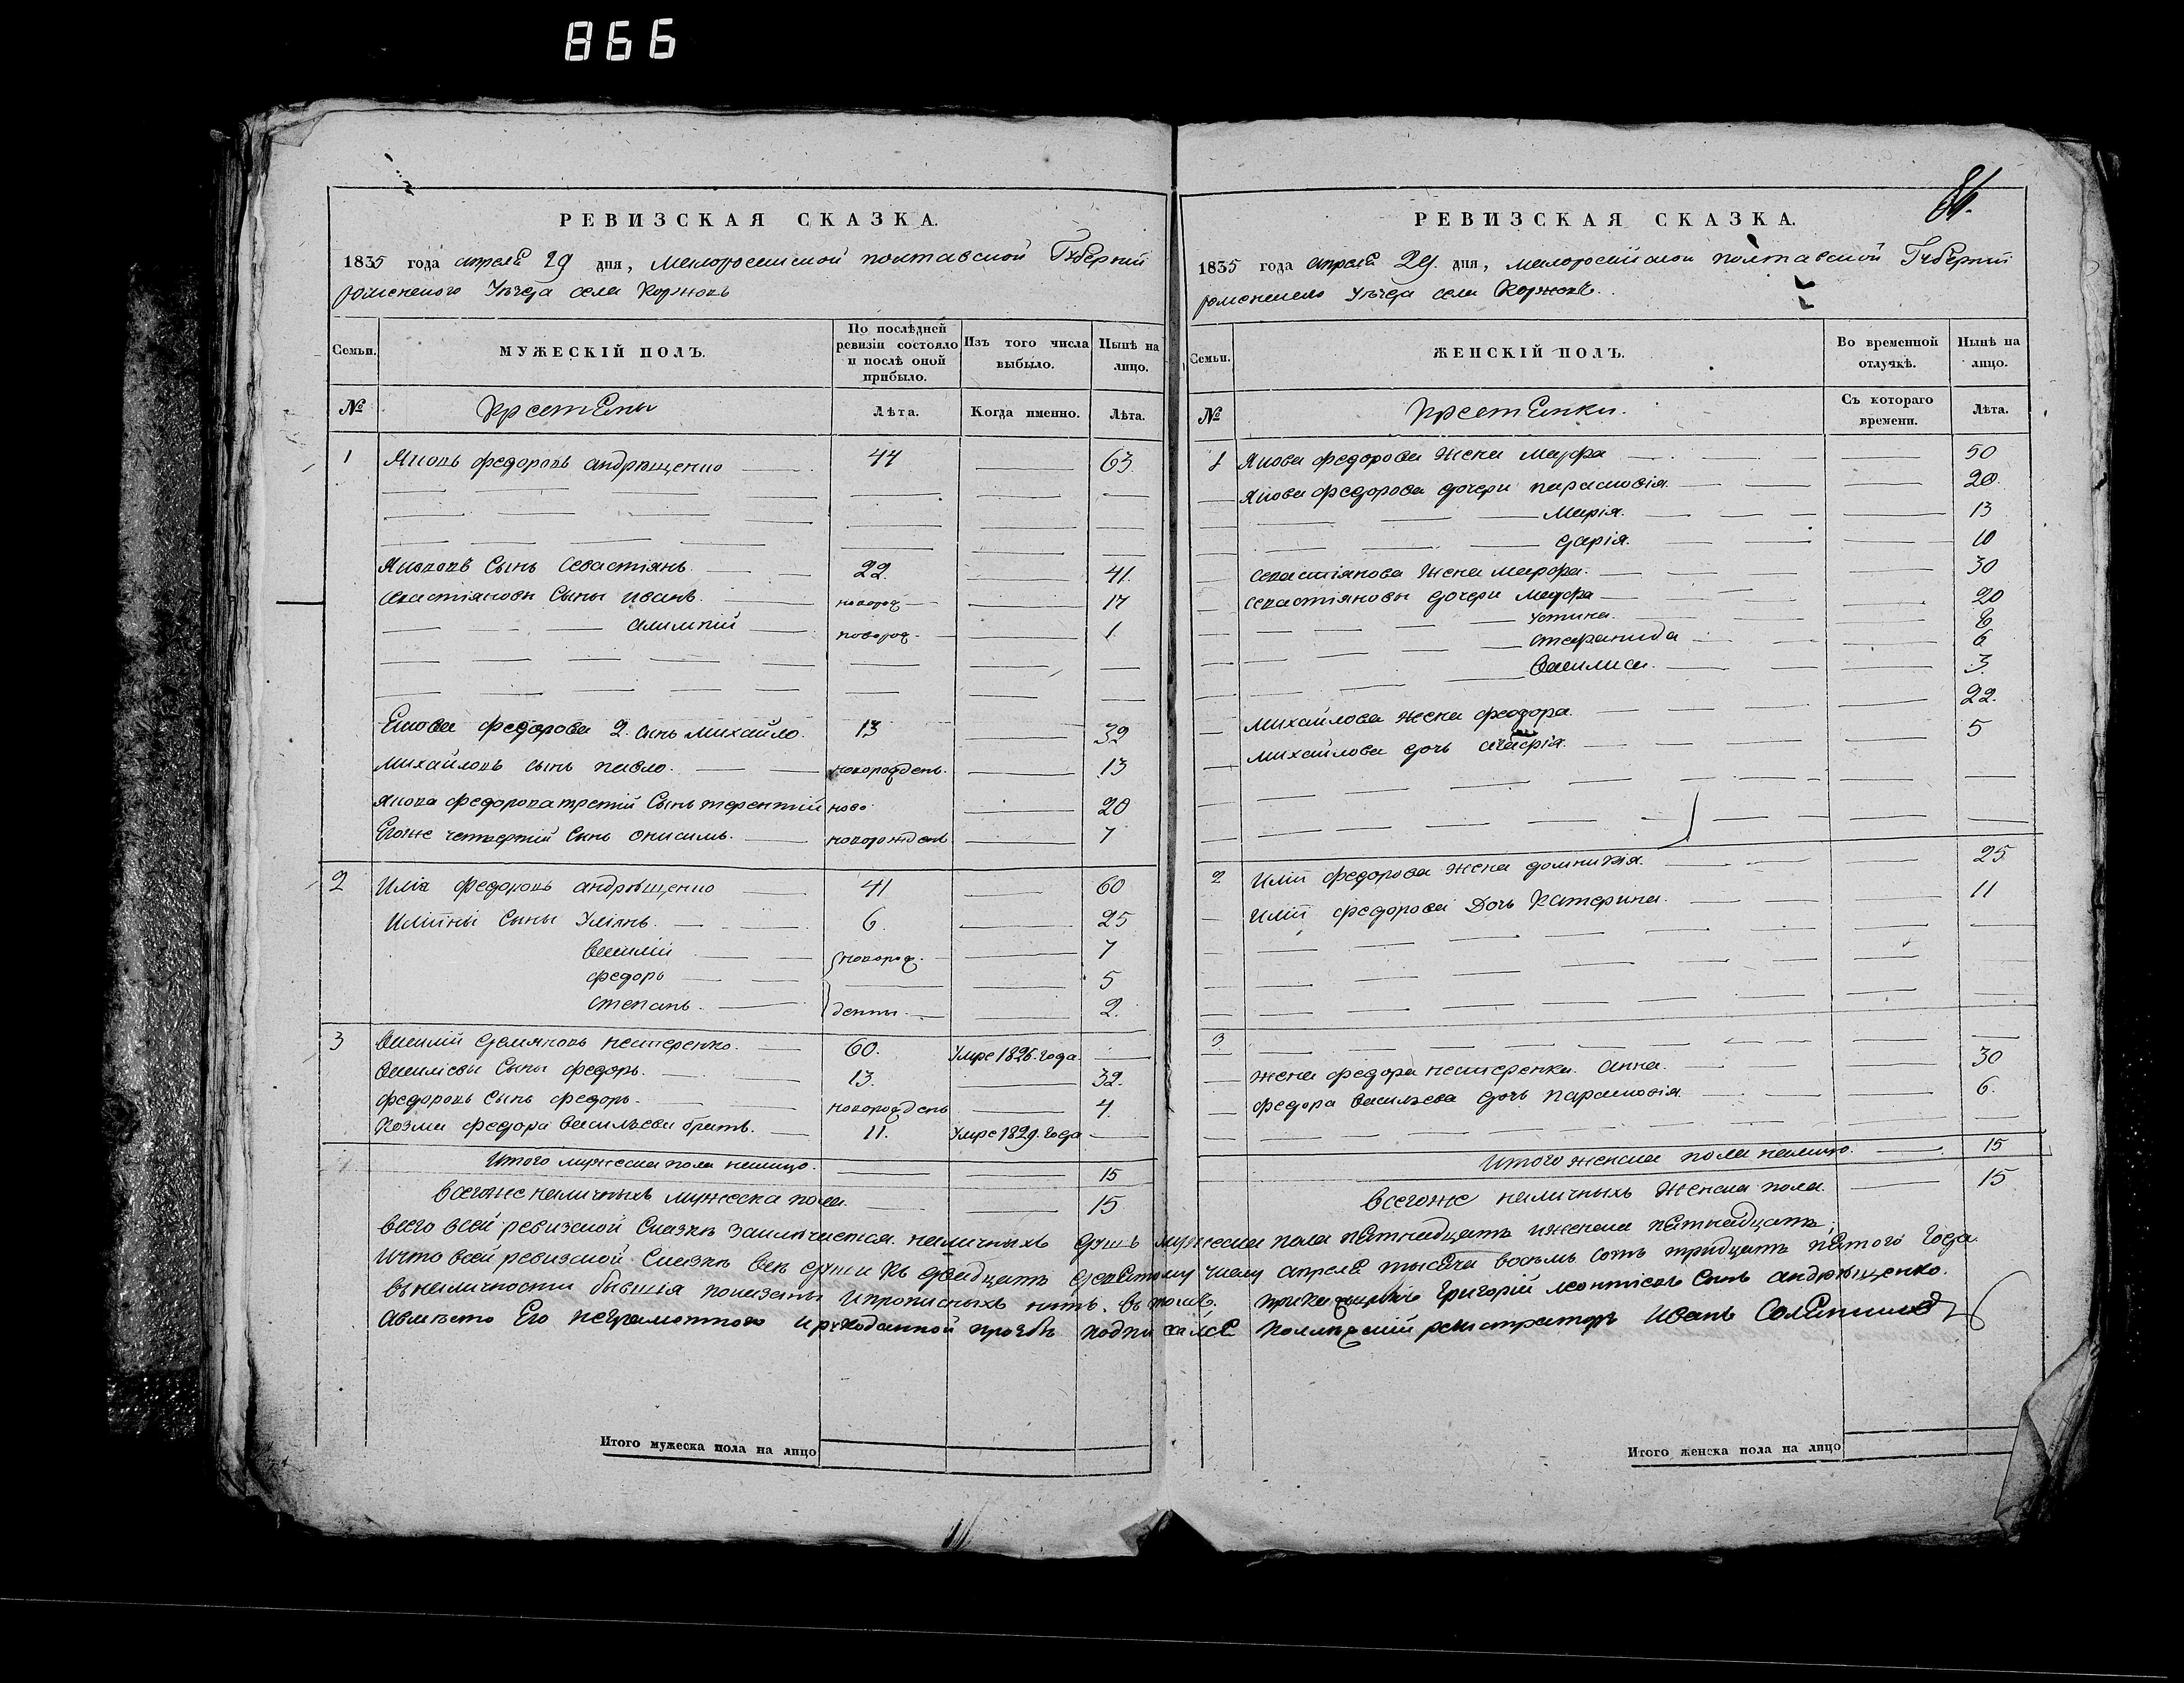 866
РЕВИЗСКАЯ СКАЗКА.
1835 года апреля 29 дня, малоросийской полтавской Губерній
роменского Уезда села Коржовъ
Семьи. МУЖЕСКІЙ ПОЛЪ. По послѣдней ревизіи состояло и послѣ оной прибыло. Изъ того числа выбыло. Нынѣ на лицо.
№ крестяны Лѣта. Когда именно. Лѣта.
1 Яковъ федоровъ андрющенко 44 63
Яковъ Сынъ Севастіянъ 22. 41.
Севастіяновы Сыны иванъ. новорож 17
алимпій новорож. 1
Екова федорова 2. сынъ михайло. 13 32
михайловъ сынъ павло. новорожденъ. 13
Якова федорова третій Сынъ терентій ново 20
Егоже четвертій Сынъ онисимъ. новорожденъ 7
2 Илія федоровъ андрющенко 41 60
Иліины Сыны Уліянъ. 6. 25
Василій новорож. 7
федоръ 5
степанъ. денны 2.
3 Василій демяновъ нестеренко. 60. Умре 1826. года
Василіевы Сыны федоръ. 13. 32.
федоровъ Сынъ федоръ. новорожденъ 4.
Козма федора Васильева братъ. 11. Умре 1829. года
Итого мужеска пола налицо. 15
всегоже наличныхъ мужеска пола. 15
Итого мужеска пола на лицо
86.
РЕВИЗСКАЯ СКАЗКА.
1835 года апреля 29. дня, малоросийской полтавской Губерній
роменского Уезда села Коржовъ.
Семьи. ЖЕНСКІЙ ПОЛЪ. Во временной отлучкѣ. Нынѣ на лицо.
№ крестянки. Съ котораго времени. Лѣта.
1 Якова федорова жена марфа 50
Якова федорова дочери парасковія 20.
Марія. 13
дарія. 10
севастіянова жена марфа. 30
севастіяновы дочери марфа 20
устина. 8
стефанида 6
Василиса. 3.
михайлова жена феодора. 22.
михайлова дочь 5
2 Иліи федорова жена домникія. 25
Иліи федорова Дочь Катерина. 11
3.
жена федора нестеренка. анна. 30
федора Васильева дочь парасковія 6.
Итого женска пола налицо. 15
всегоже наличныхъ женска пола. 15
всего всей ревизской Сказкѣ заключается. наличныхъ душъ мужеска пола пятнадцать иженска пятнадцать.
Ичто всей ревизской Сказкѣ все души къ двадцать девятому числу апреля тысяча восемь сотъ тридцать пятого Года
вналичности бывшія показаны ипрописныхъ нѣтъ. въ томъ. Григорій леонтіевъ Сынъ андрющенко.
авместо Его неграмотного ирукоданной прозбѣ подписался коллежскій регистраторъ Иванъ
Итого женска пола на лицо